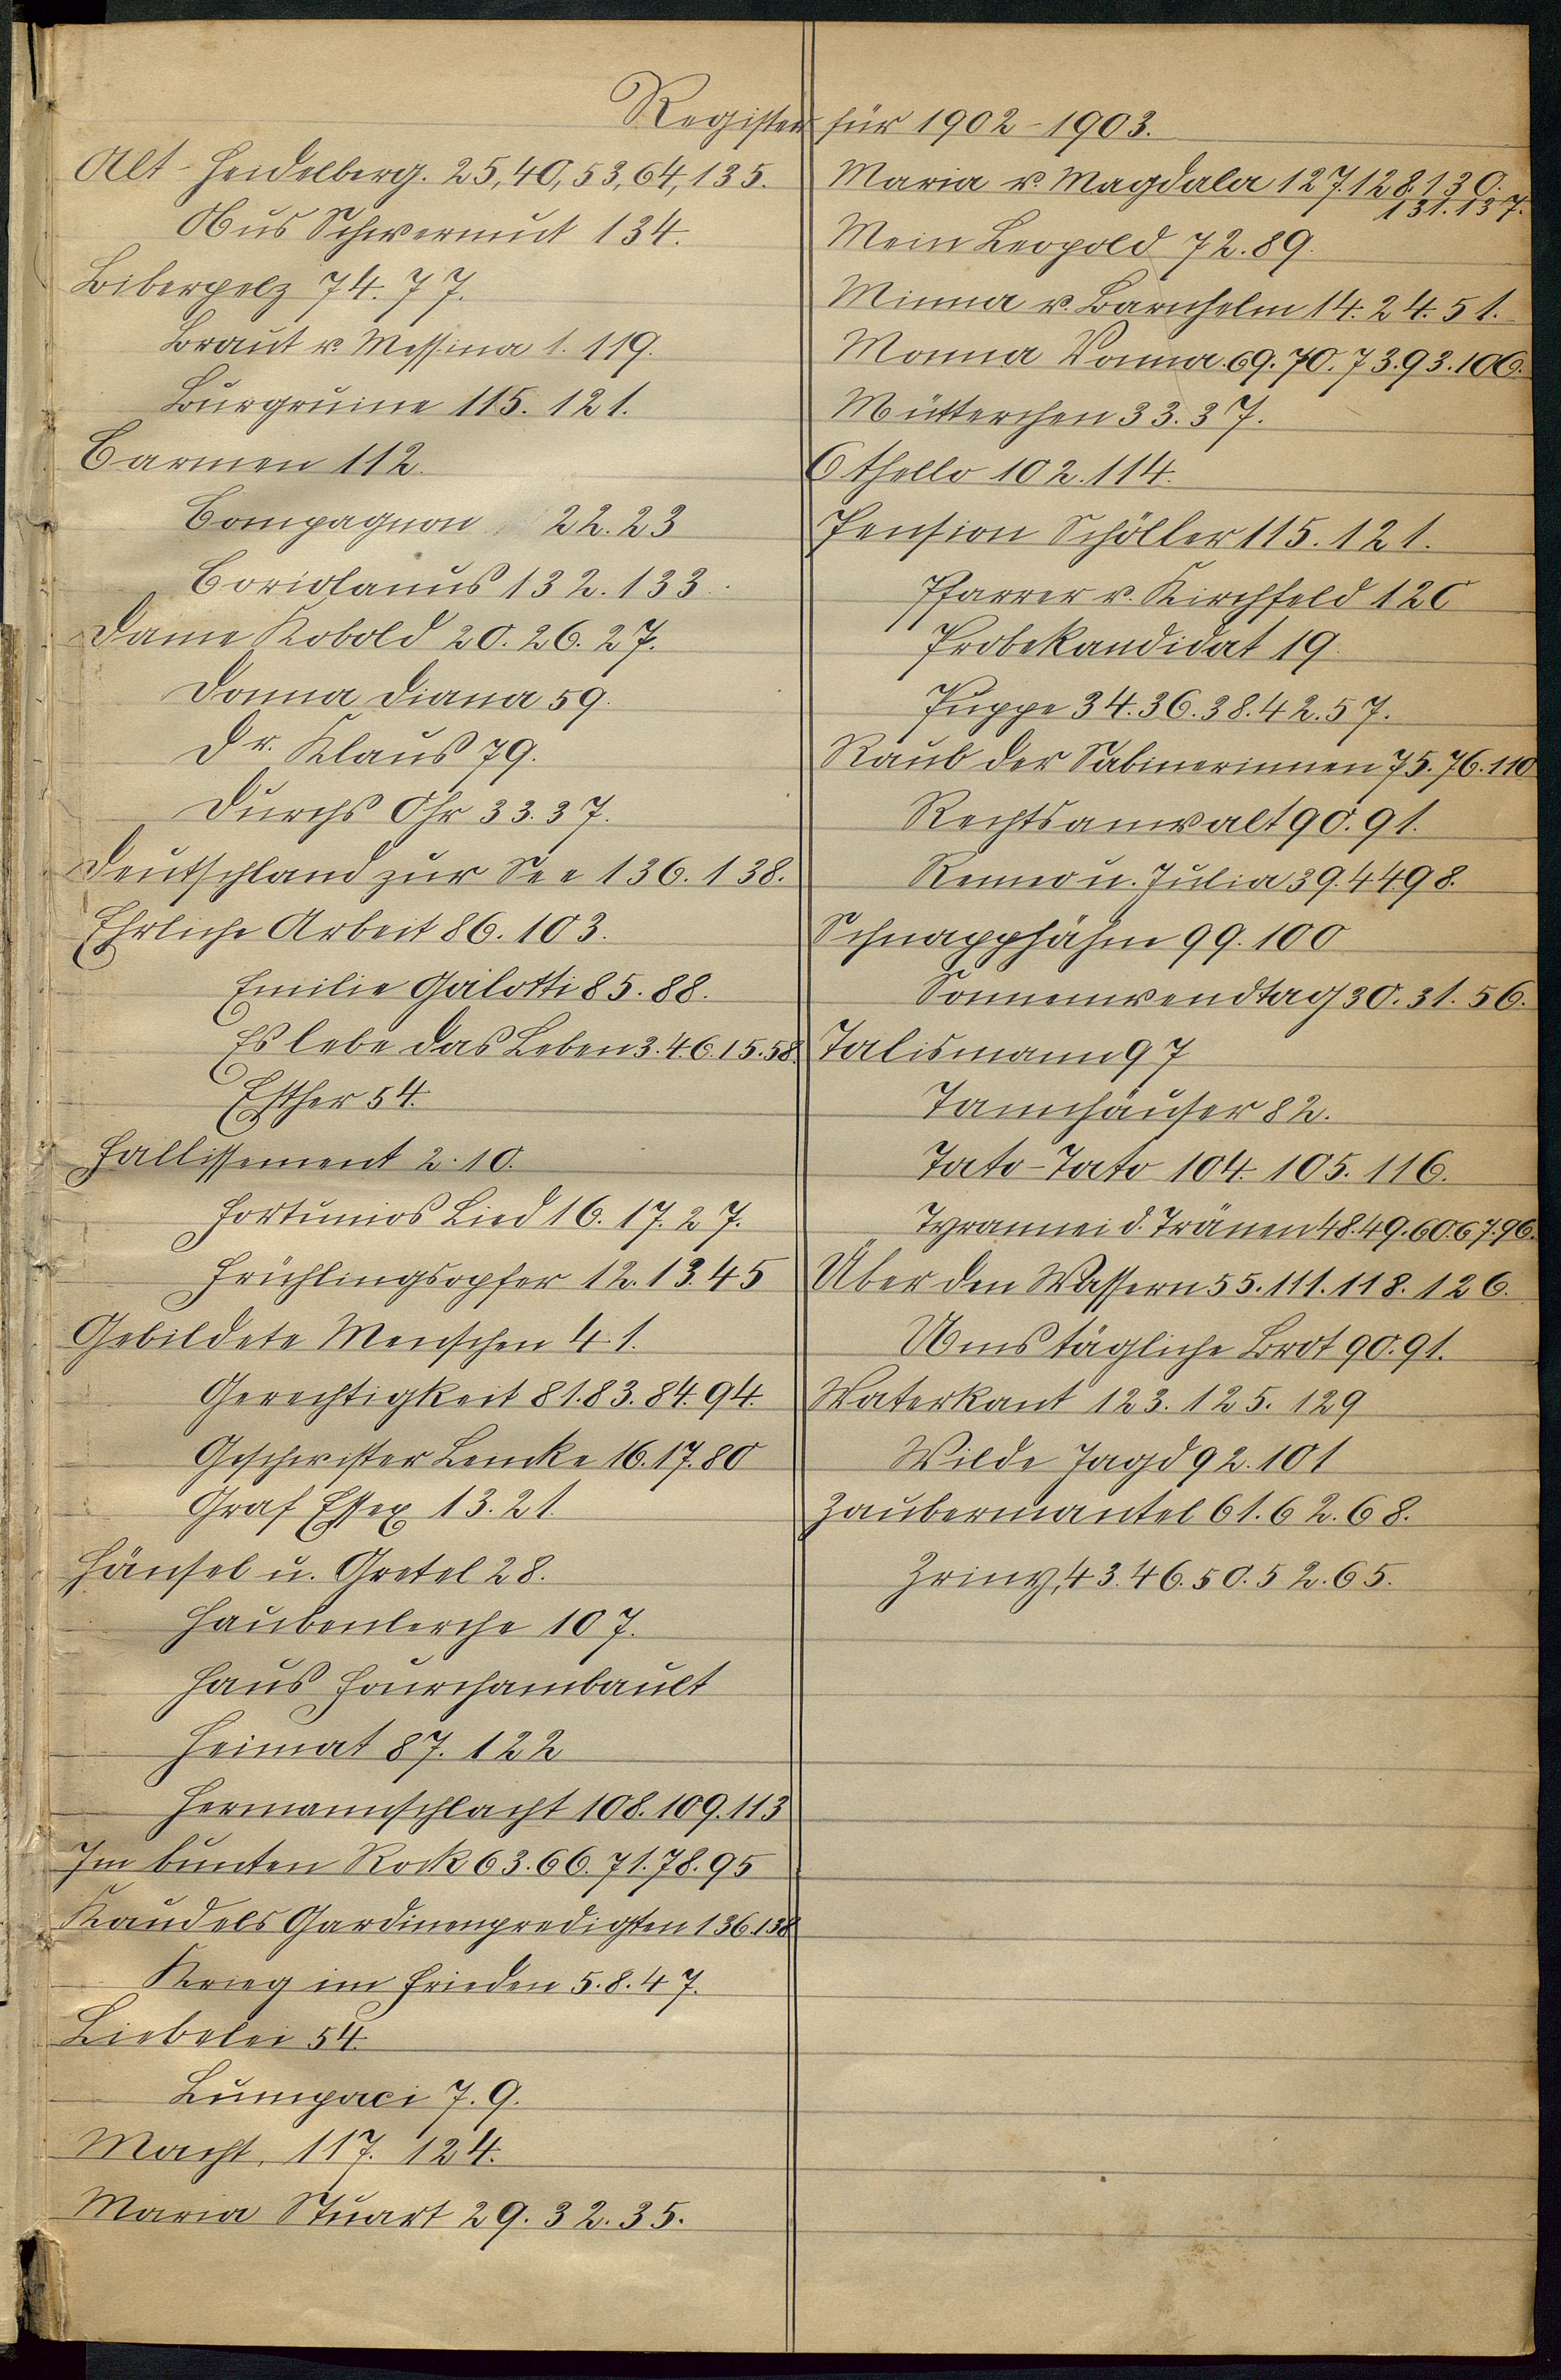 Register für 1902-1903.
Alt-Heidelberg. 25, 40, 53, 64, 135.
Aus Schwermut 134.
Biberpelz 74. 77.
Braut v. Messina 1. 119.
Burgruine 115. 121.
Carmen 112.
Compagnon 22. 23
Coriolanus 132. 133.
Dame Kobold 20. 26. 27.
Donna Diana 59.
Dr. Klaus 79.
Durchs Ohr 33. 37.
Deutschland zur See 136. 138.
Ehrliche Arbeit 86. 103.
Emilie Galotti 85. 88.
Es lebe das Leben 3. 4. 6. 15. 58.
Esther 54.
Fallissement 2. 10.
Fortunios Lied 16. 17. 27.
Frühlingsopfer 12. 13. 45
Gebildete Menschen 41.
Gerechtigkeit 81. 83. 84. 94.
Geschwister Lemke 16. 17. 80
Graf Essex 13. 21.
Hänsel u. Gretel 28.
Haubenlerche 107.
Haus Fourchambault
Heimat 87. 122
Hermannschlacht 108. 109. 113
Im bunten Rock 63. 66. 71. 78. 95
Kaudels Gardinenpredigten 136. 138
Krieg im Frieden 5. 8. 47.
Liebelei 54.
Lumpaci 7. 9.
Macht, 117. 124.
Maria Stuart 29. 32. 35.
Maria v. Magdala 127. 128. 130.
131. 137.
Mein Leopold 72. 89.
Minna v. Barnhelm 14. 24. 51.
Monna Vanna. 69. 70. 73. 93. 106.
Mütterchen 33. 37.
Othello 102. 114.
Pension Schöller 115. 121.
Pfarrer v. Kirchfeld 120
Probekandidat 19.
Puppe 34. 36. 38. 42. 57.
Raub der Sabinerinnen 75. 76. 110
Rechtsanwalt 90. 91.
Romeo u. Julia 39. 44 98.
Schnapphähne 99. 100
Sonnenwendtag 30. 31. 56.
Talismann 97
Tannhäuser 82.
Tato-Tato 104. 105. 116.
Tyrannei d. Tränen 48. 49. 60. 67. 96.
Über den Wassern 55. 111. 118. 126.
Ums tägliche Brot 90. 91.
Waterkant 123. 125. 129
Wilde Jagd 92. 101
Zaubermantel 61. 62. 68.
Zriny, 43. 46. 50. 52. 65.